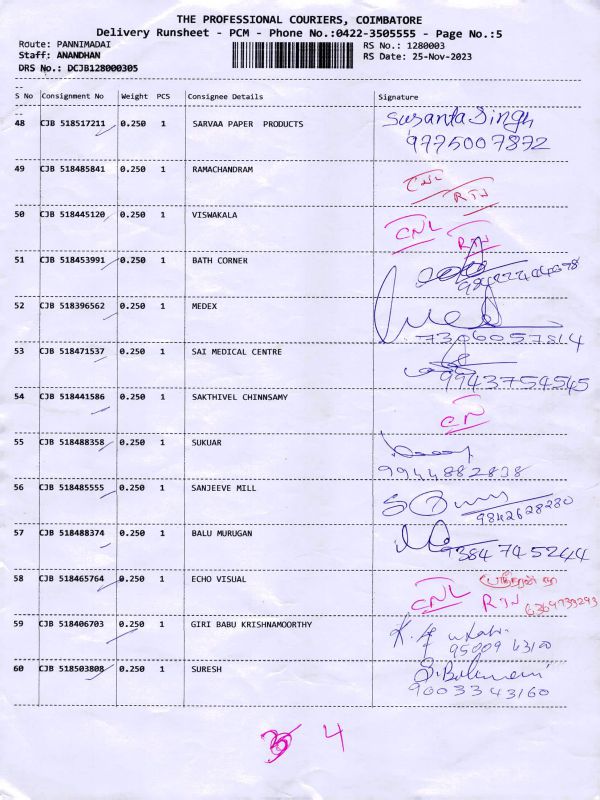 THE PROFESSIONAL COURIERS, COIMBATORE
Delivery Runsheet - PCM - Phone No.:0422-3505555 - Page No.:5
Route: PANNIMADAI RS No.: 1280003
Staff: ANANDHAN RS Date: 25-Nov-2023
DRS No.: DCJB128000305
--
S No Consignment No Weight PCS Consignee Details Signature
--
48 CJB 518517211 0.250 1 SARVAA PAPER PRODUCTS Susanta Singh
9775007872
49 CJB 518485841 0.250 1 RAMACHANDRAM CNL
RTN
50 CJB 518445120 0.250 1 VISWAKALA CNL
RTN
51 CJB 518453991 0.250 1 BATH CORNER
52 CJB 518396562 0.250 1 MEDEX
7306057814
53 CJB 518471537 0.250 1 SAI MEDICAL CENTRE
9943754545
54 CJB 518441586 0.250 1 SAKTHIVEL CHINNSAMY CN
55 CJB 518488358 0.250 1 SUKUAR
9944882838
56 CJB 518485555 0.250 1 SANJEEVE MILL
9842628280
57 CJB 518488374 0.250 1 BALU MURUGAN
9384745244
58 CJB 518465764 0.250 1 ECHO VISUAL CNL
RTN
59 CJB 518406703 0.250 1 GIRI BABU KRISHNAMOORTHY
95009 63100
60 CJB 518503808 0.250 1 SURESH
9003343160
4